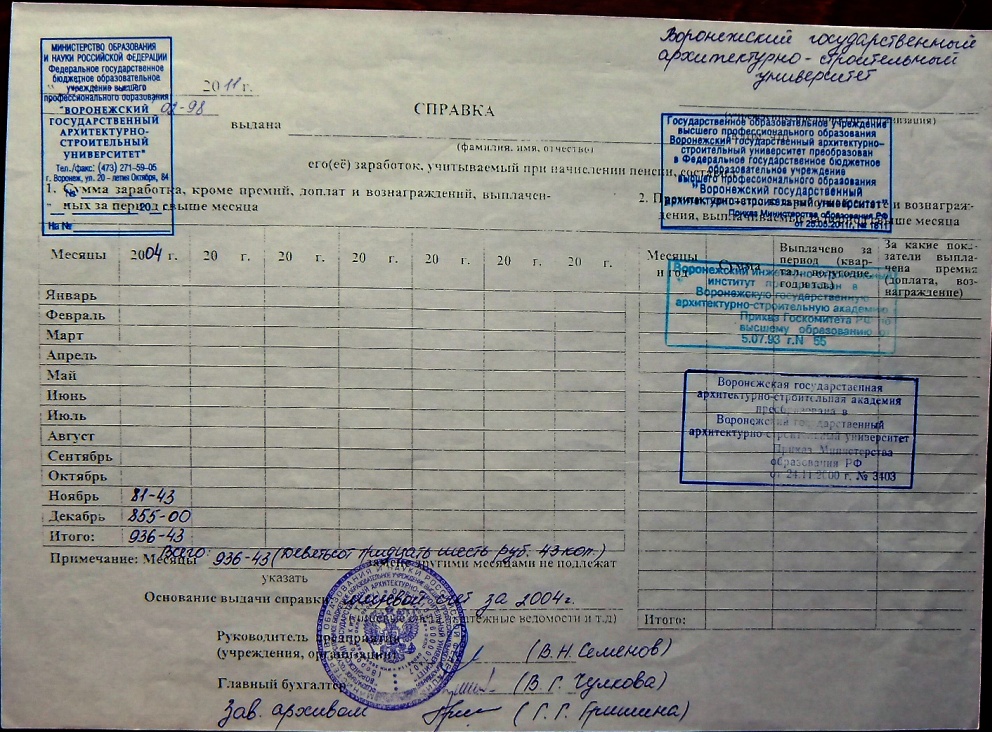 Воронежский государственный
архитектурно-строительный
университет
МИНИСТЕРСТВО ОБРАЗОВАНИЯ
И НАУКИ РОССИЙСКОЙ ФЕДЕРАЦИИ
Федеральное государственное
бюджетное образовательное
учреждение высшего
профессионального образования
"ВОРОНЕЖСКИЙ
ГОСУДАРСТВЕННЫЙ
АРХИТЕКТУРНО-
СТРОИТЕЛЬНЫЙ
УНИВЕРСИТЕТ"
Тел./факс: (473) 271-59-05
г. Воронеж, ул. 20 - летия Октября, 84
№
" 20 г.
На №
2011 г.
01-98
СПРАВКА
выдана
(фамилия, имя, отчество)
его(её) заработок, учитываемый при начислении пенсии,
Государственное образовательное учреждение
высшего профессионального образования
Воронежский государственный архитектурно-
строительный университет преобразован
в Федеральное государственное бюджетное
образовательное учреждение
высшего профессионального образования
"Воронежский государственный
архитектурно-строительный университет"
Приказ Министерства образования РФ
от 25.05.2011г. № 1811
1. Сумма заработка, кроме премий, доплат и вознаграждений, выплачен-
ных за период свыше месяца
2. и вознаграж-
дения, выплачиваемые за период свыше месяца
Месяцы 2004 г. 20 г. 20 г. 20 г. 20 г. 20 г. 20 г.
Январь
Февраль
Март
Апрель
Май
Июнь
Июль
Август
Сентябрь
Октябрь
Ноябрь 81-43
Декабрь 855-00
Итого: 936-43
Месяцы и год
Сумма
Выплачено за
период (квар-
тал, полугодие,
год и т.д.)
За какие пока-
затели выпла-
чена премия
(доплата, воз-
награждение)
Воронежский инженерно-строительный
институт преобразован в
Воронежскую государственную
архитектурно-строительную академию
Приказ Госкомитета РФ по
высшему образованию от
5.07.93 г. N 55
Воронежская государственная
архитектурно-строительная академия
преобразована в
Воронежский государственный
архитектурно-строительный университет
Приказ Министерства
образования РФ
от 24.11.2000 г. № 3403
Итого:
Всего: 936-43 (Девятьсот тридцать шесть руб. 43 коп.)
Примечание: Месяцы замене другими месяцами не подлежат
указать
Основание выдачи справки: лицевой счёт за 2004г.
(лицевые счета, платежные ведомости и т.д)
Руководитель предприятия
(учреждения, организации) (В.Н. Семенов)
Главный бухгалтер (В. Г. Чулкова)
Зав. архивом (Г. Г. Гришина)